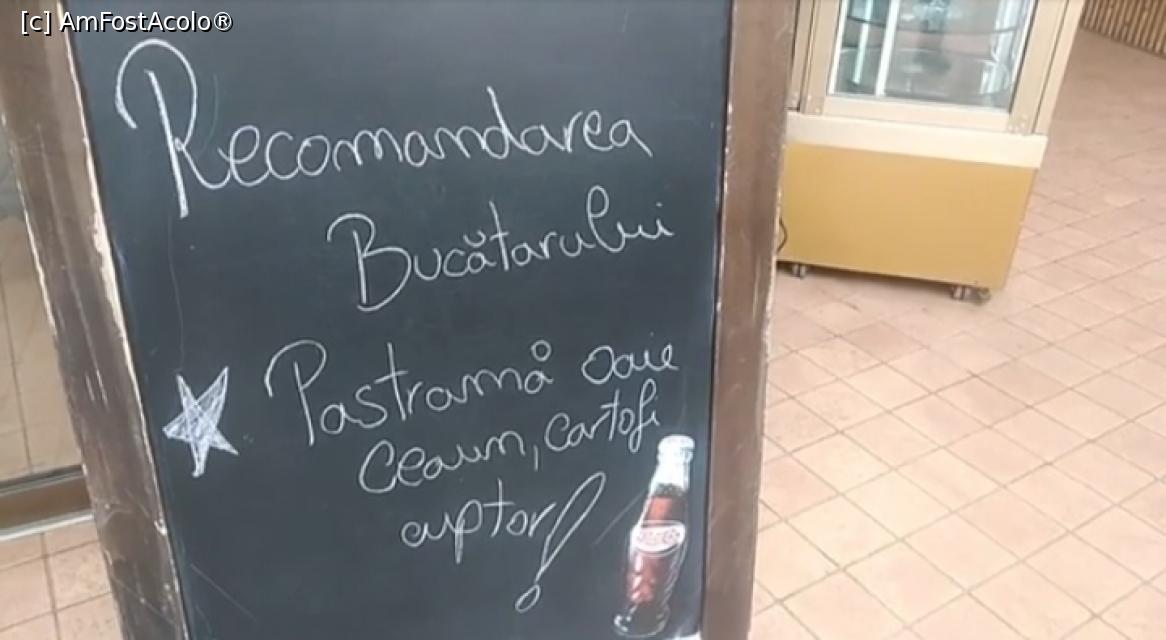 [c] AmFostAcolo®
Recomandarea
Bucătarului
Pastramă oaie
Ceaun, cartofi
cuptor!